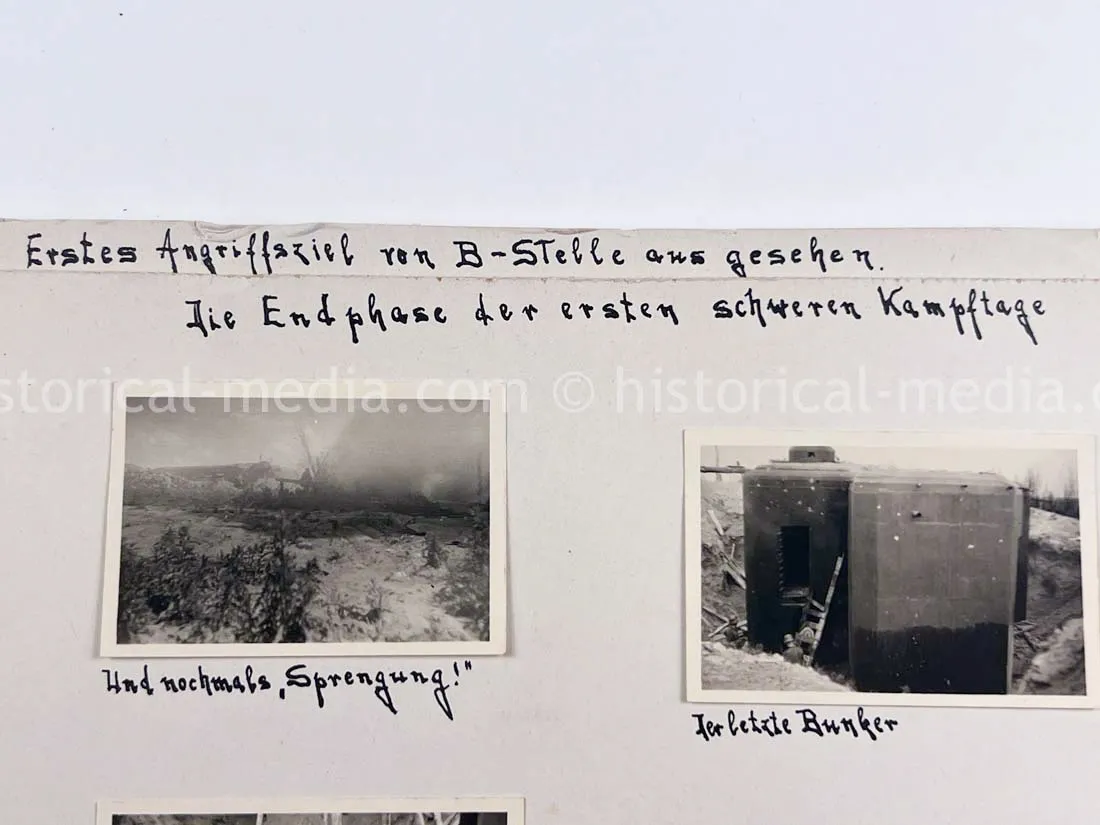 Erstes Angriffsziel von B-Stelle aus gesehen.
Die Endphase der ersten schweren Kampftage
storical-media.com © historical-media.c
Und nochmals „Sprengung!"
Der letzte Bunker